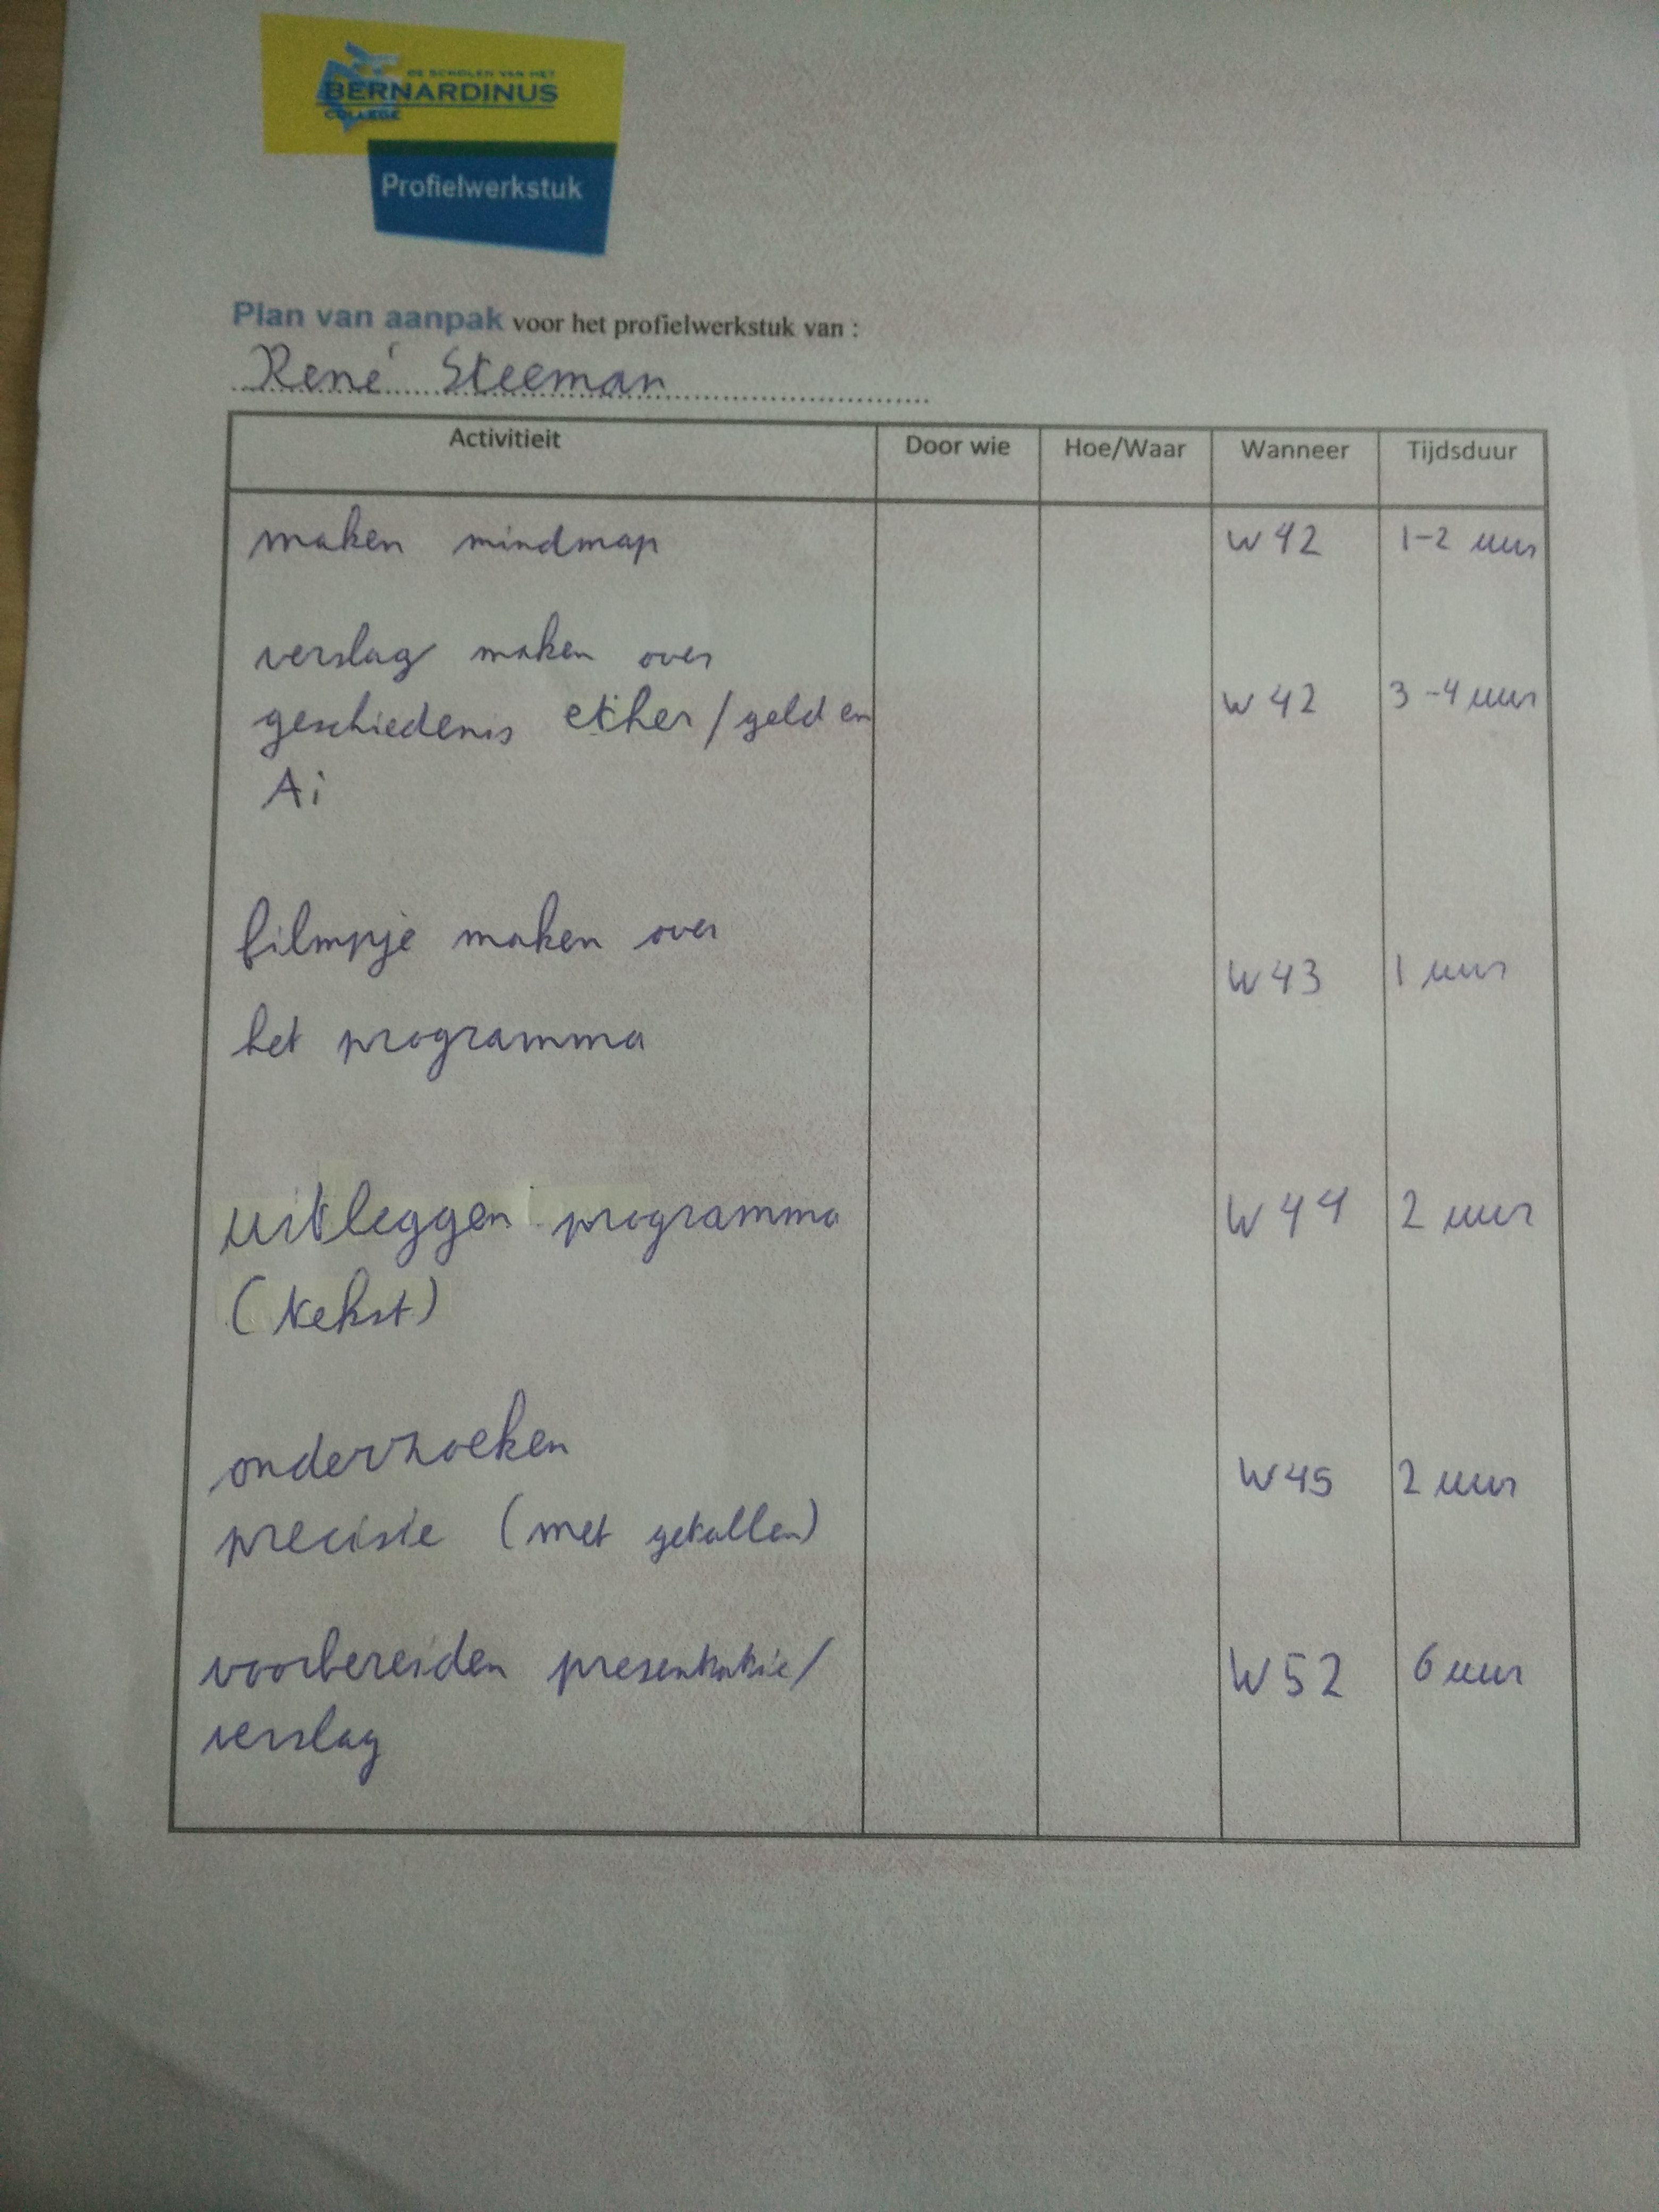 DE SCHOLEN VAN HET
BERNARDINUS
COLLEGE
Profielwerkstuk
Plan van aanpak voor het profielwerkstuk van :
René Steeman
Activitieit Door wie Hoe/Waar Wanneer Tijdsduur
maken mindmap W 42 1-2 uur
verslag maken over
geschiedenis ether/geld en W 42 3-4 uur
Ai
filmpje maken over
W 43 1 uur
het programma
uitleggen programma W 44 2 uur
(tekst)
onderzoeken W 45 2 uur
precisie (met getallen)
voorbereiden presentatie/ W 52 6 uur
verslag